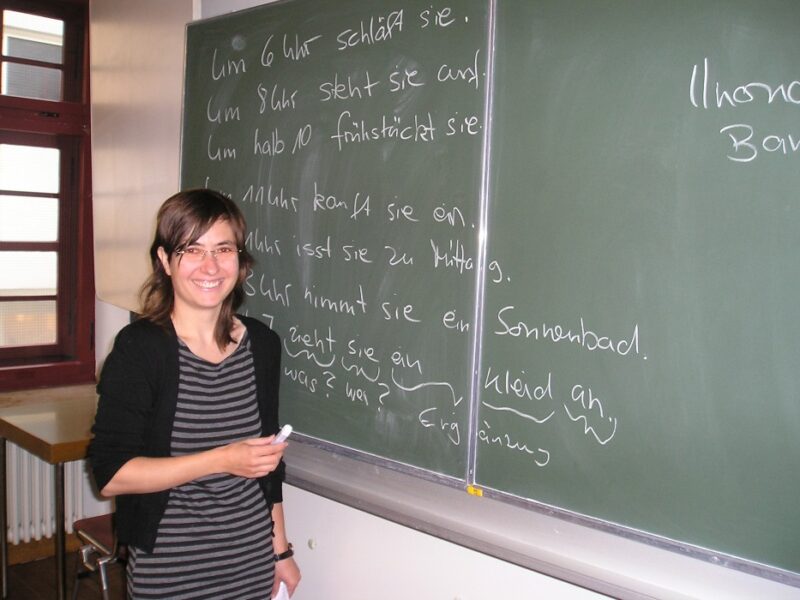 Um 6 Uhr schläft sie.
Um 8 Uhr steht sie auf.
Um halb 10 frühstückt sie.
11 Uhr kauft sie ein.
Uhr isst sie zu Mittag.
3 Uhr nimmt sie ein Sonnenbad.
7 zieht sie ein Kleid an.
was? wer? Ergänzung